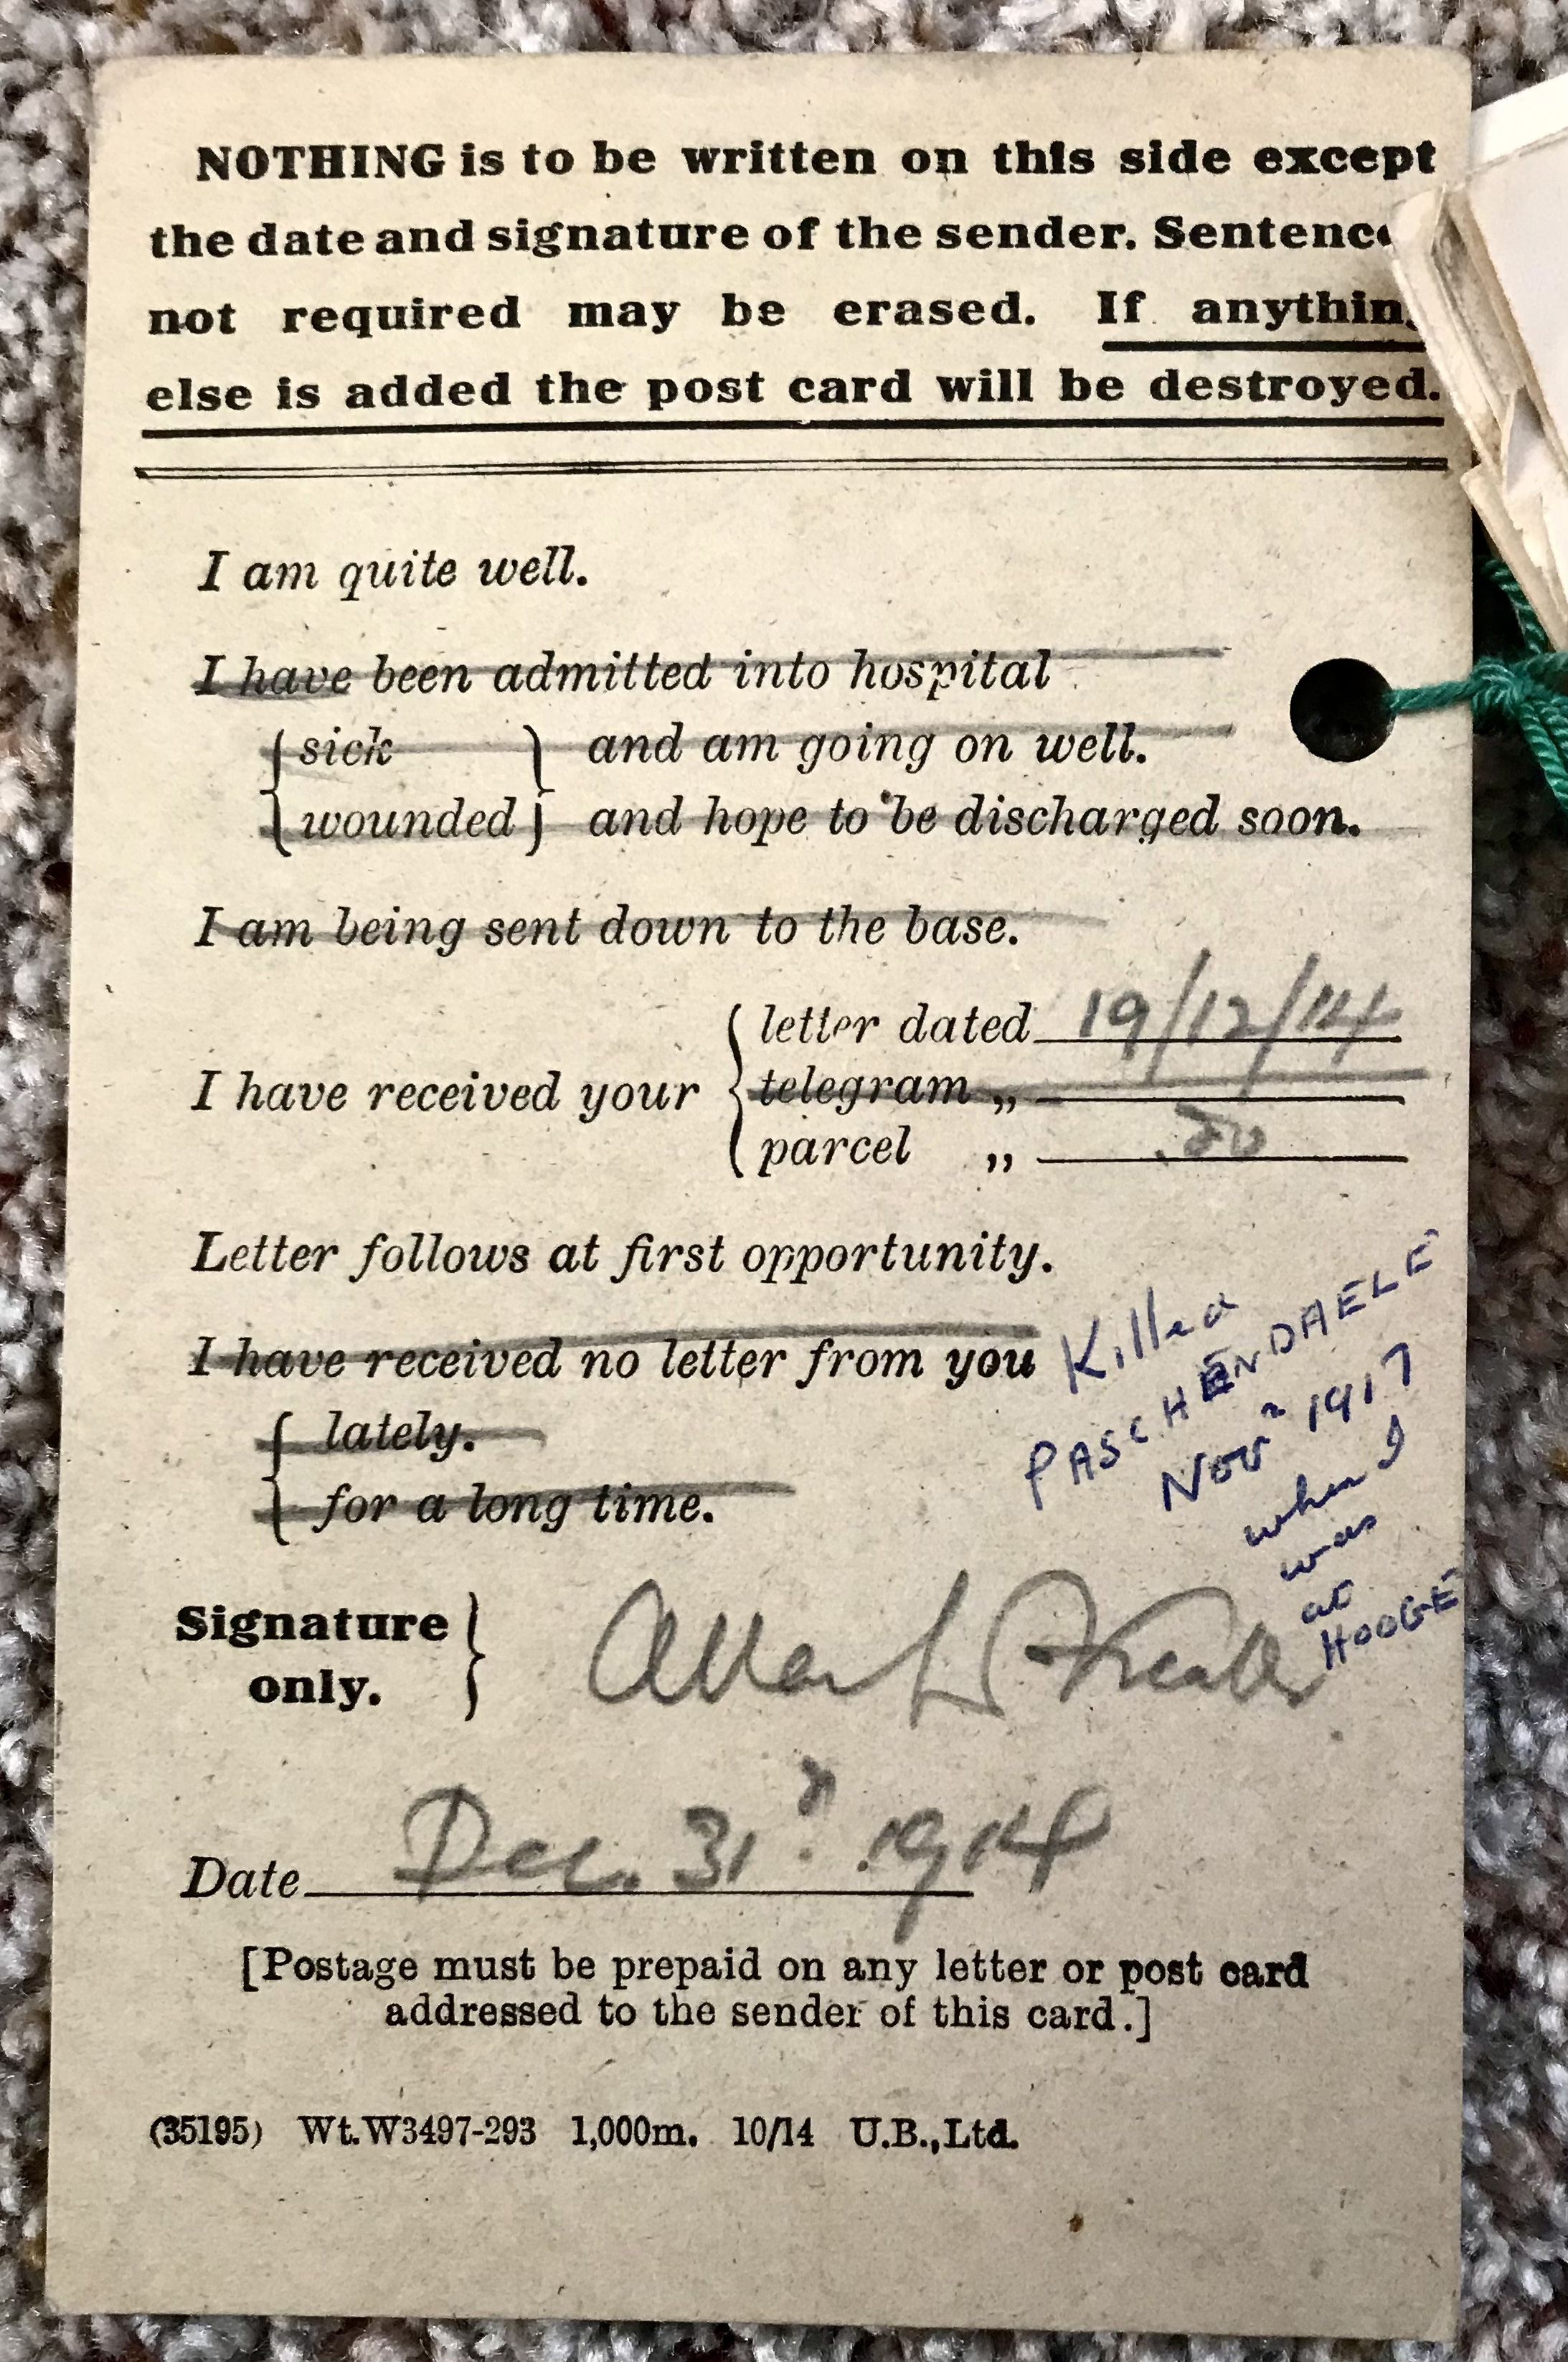 NOTHING is to be written on this side except
the date and signature of the sender. Sentenc
not required may be erased. If anythin
else is added the post card will be destroyed.
I am quite well.
I have been admitted into hospital
sick and am going on well.
wounded and hope to be discharged soon.
I am being sent down to the base.
letter dated 19/12/14
I have received your telegram „
parcel „ .do
Letter follows at first opportunity.
I have received no letter from you
lately.
for a long time.
Killed
PASCHENDAELE
Novr 1917
when I
was
at
HOOGE
Signature
only.
Albert
Date Dec. 31st 1914
[Postage must be prepaid on any letter or post card
addressed to the sender of this card.]
(35195) Wt.W3497-293 1,000m. 10/14 U.B.,Ltd.